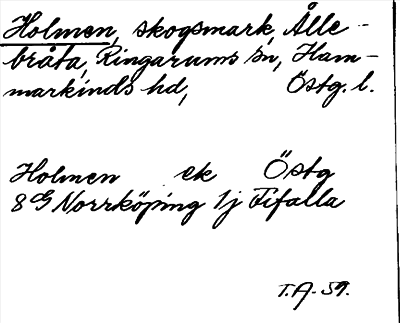 Holmen, skogsmark, Ålle-
bråta, Ringarums sn, Ham-
markinds hd, Östg. l.
Holmen ek Östg
8G Norrköping 1j Fifalla
T.A. 59.